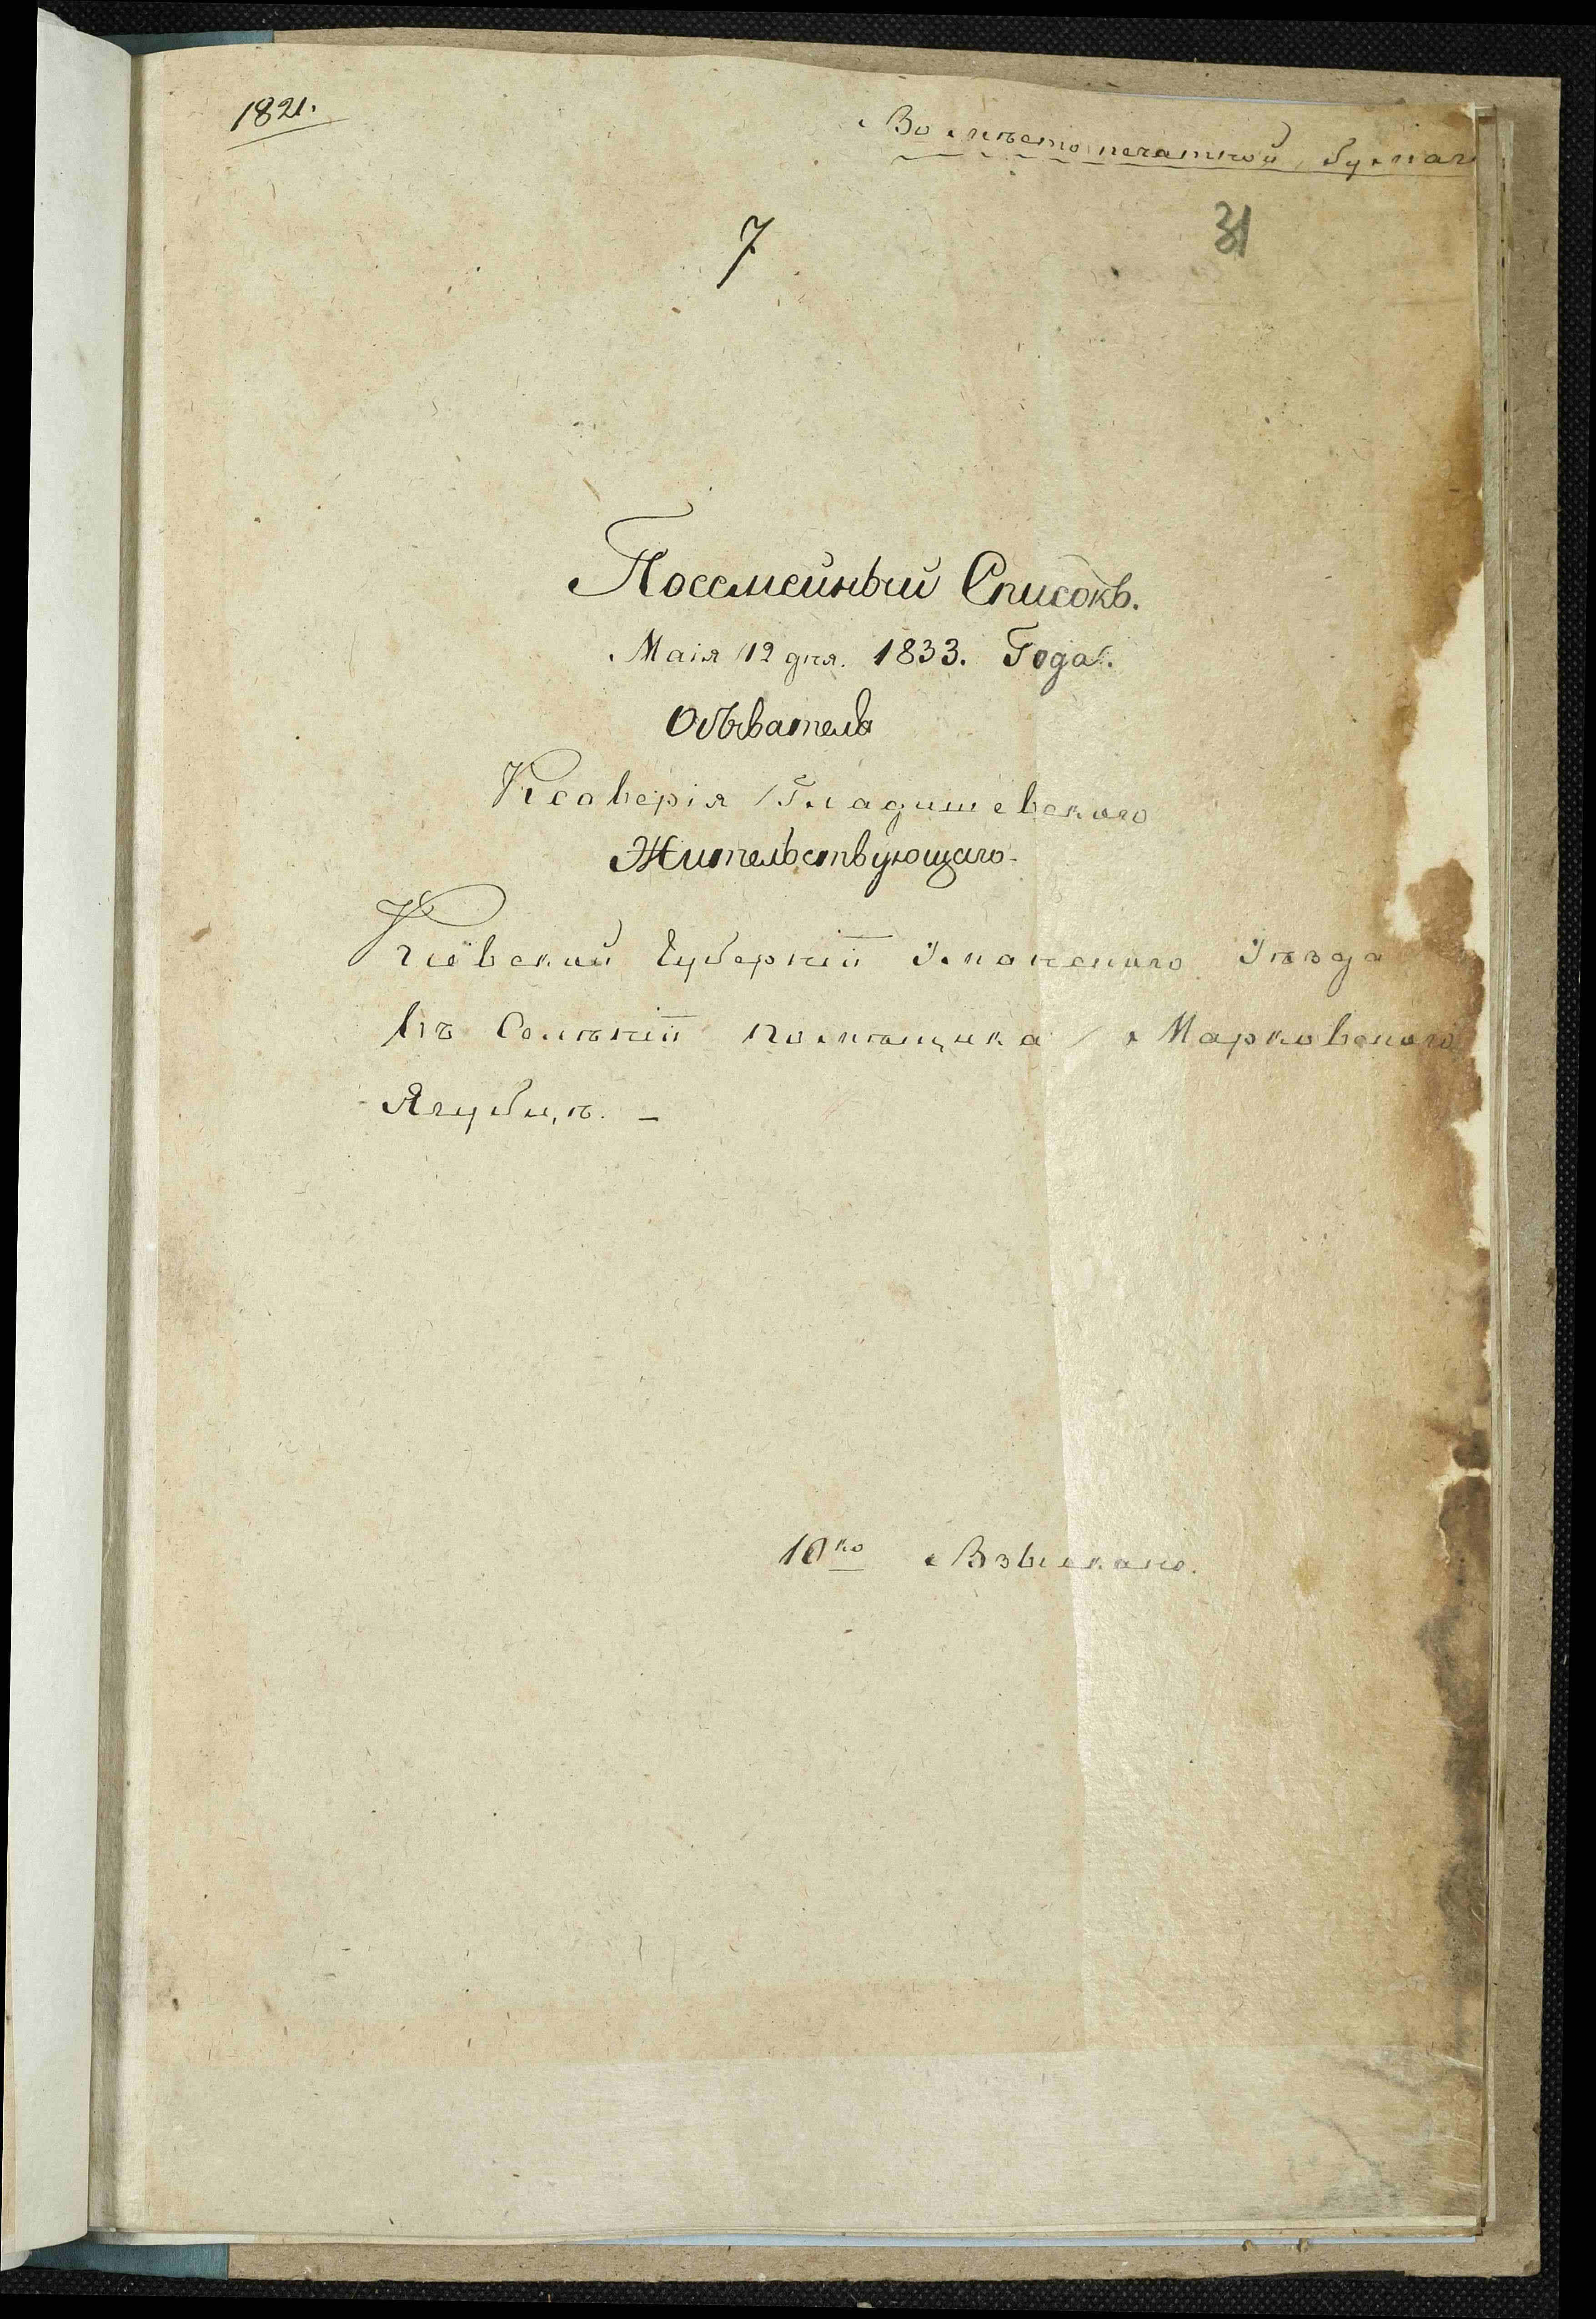 1821.
Во мѣсто печатной бумаги
7
31
Посемейный Списокъ.
Маія 12 дня. 1833. Года.
Обывателя
Ксаверія Гладишевского
Жительствующаго
Кіевский Губерніи Уманского Уѣзда
въ Селѣніи помѣщика Марковского
Ягубцѣ. -
10 ко Взыскано.